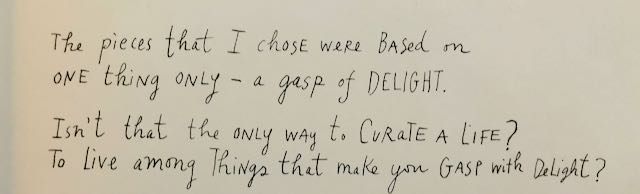 The pieces that I chose were BASed on
ONE thiNg ONLY - a gasp of DELIGHT.
Isn't that the ONLY WAY to CURATE A LIFE?
To Live among Things that make you GASP with DeLight?